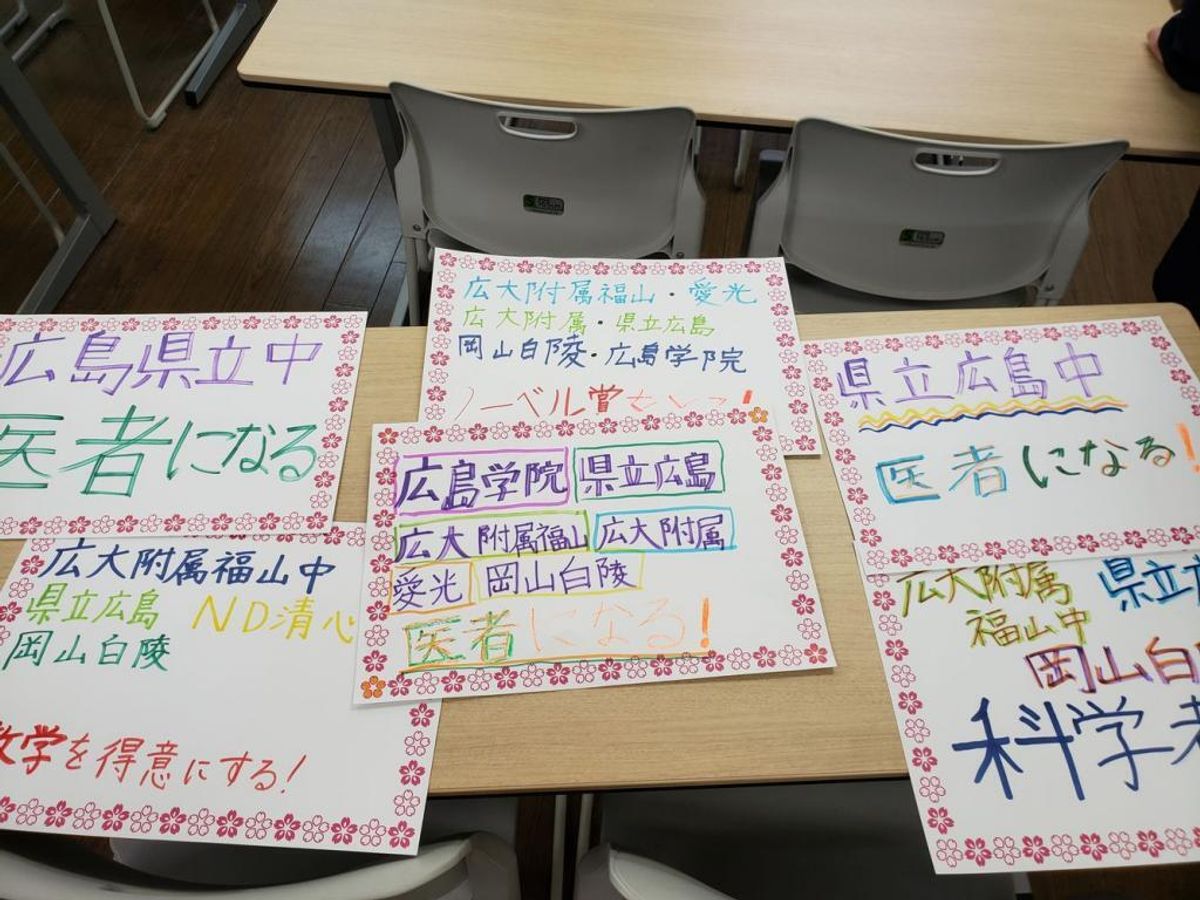 広島県立中
医者になる
広大附属福山・愛光
広大附属・県立広島
岡山白陵・広島学院
ノーベル賞をとる!
県立広島中
医者になる!
広島学院 県立広島
広大附属福山 広大附属
愛光 岡山白陵
医者になる!
広大附属福山中
県立広島 ND清心
岡山白陵
数学を得意にする!
広大附属 県立広
福山中
岡山白
科学者